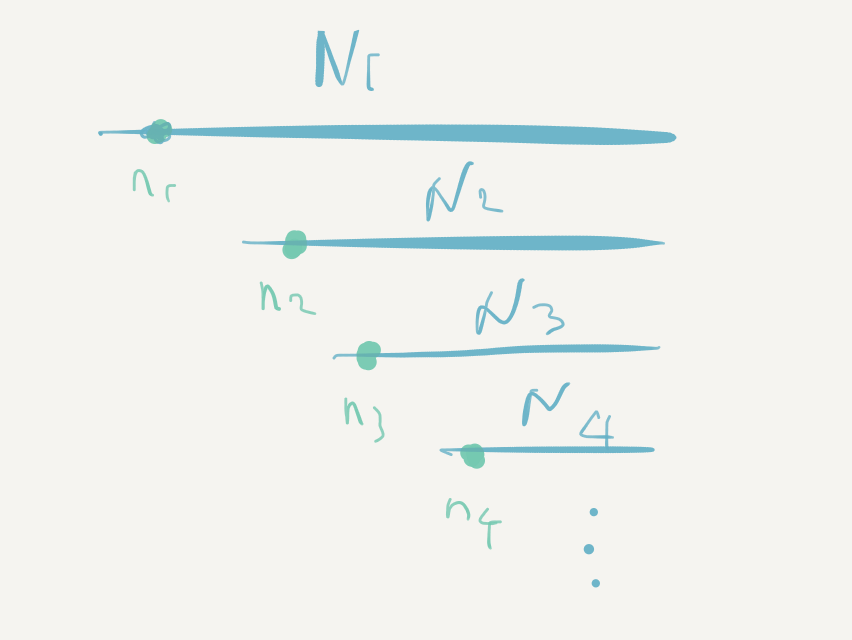 N1
n1
N2
n2
N3
n3
N4
n4